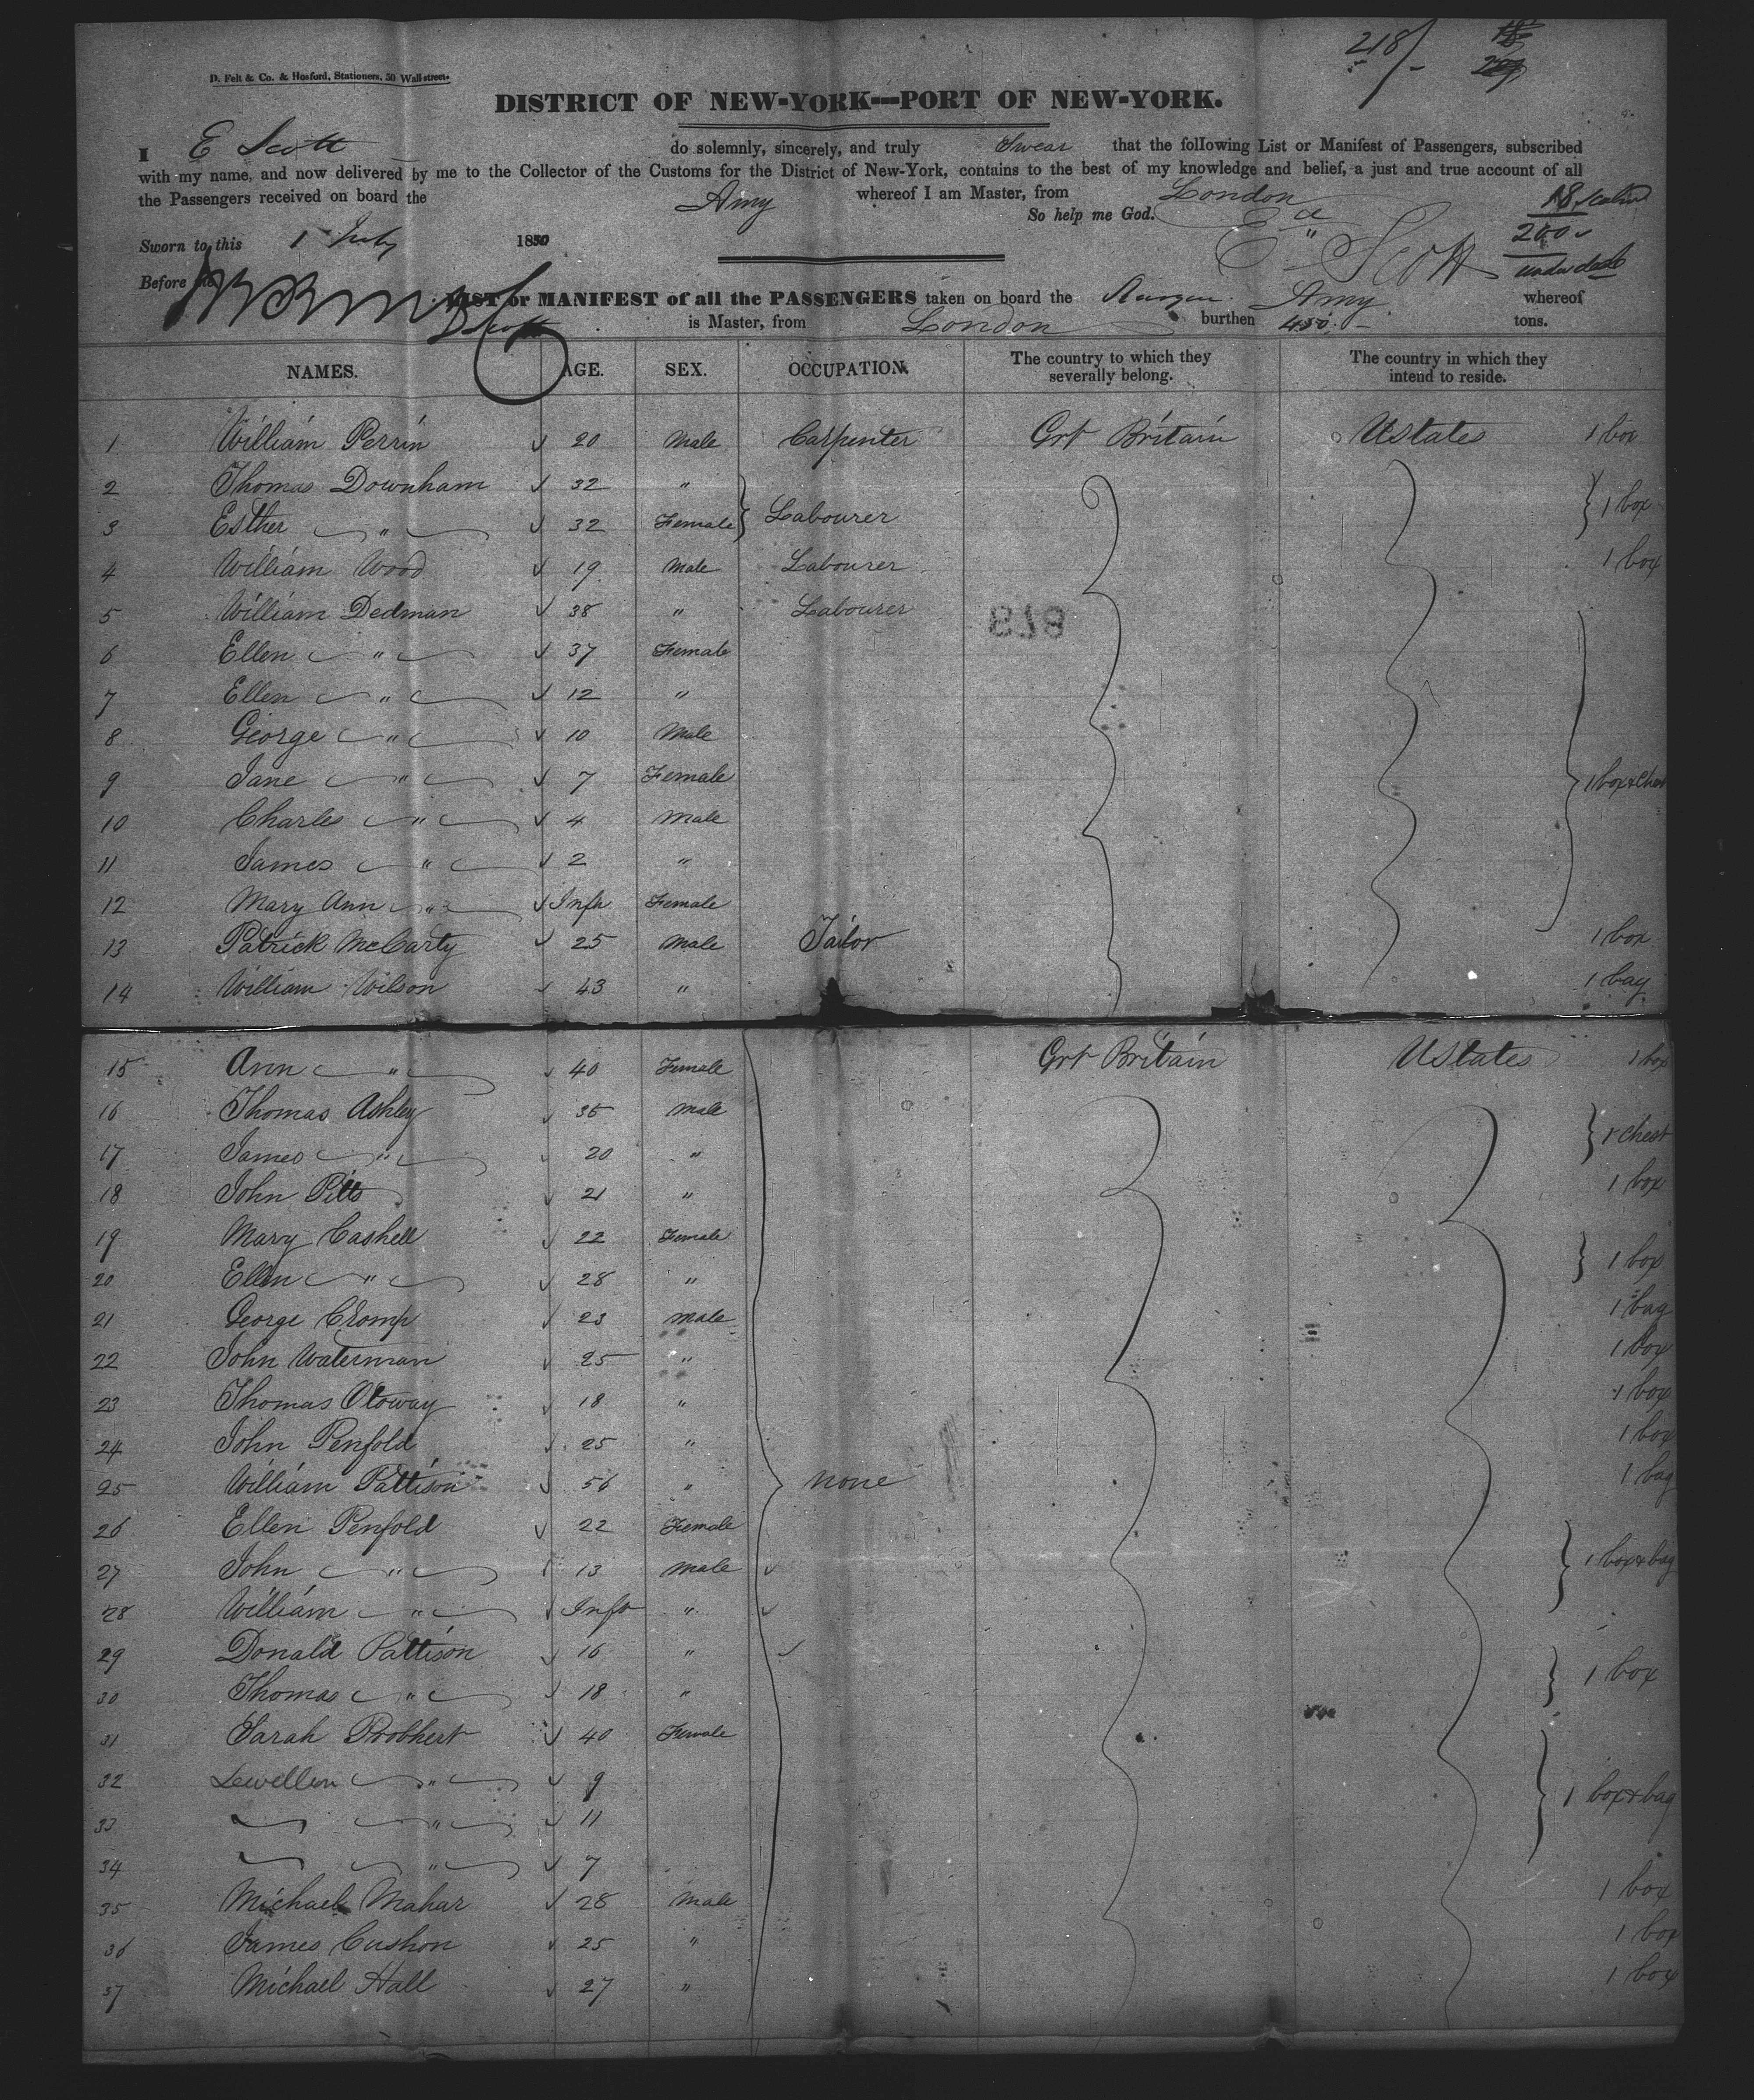 218/-
D. Felt & Co. & Hosford, Stationers, 50 Wall street.
DISTRICT OF NEW-YORK---PORT OF NEW-YORK.
I E Scott do solemnly, sincerely, and truly Swear that the following List or Manifest of Passengers, subscribed
with my name, and now delivered by me to the Collector of the Customs for the District of New-York, contains to the best of my knowledge and belief, a just and true account of all
the Passengers received on board the Amy whereof I am Master, from London
So help me God.
18
Sworn to this 1 July 1850
Ed Scott
200
under deck
Before me
LIST or MANIFEST of all the PASSENGERS taken on board the Amy whereof
E Scott is Master, from London burthen 450 tons.
NAMES. AGE. SEX. OCCUPATION. The country to which they severally belong. The country in which they intend to reside.
1 William Perrin 20 Male Carpenter Grt Britain Ustates 1 box
2 Thomas Downham 32 "
3 Esther " 32 Female Labourer 1 box
4 William Wood 19 Male Labourer 1 box
5 William Dedman 38 " Labourer
878
6 Ellen " 37 Female
7 Ellen " 12 "
8 George " 10 Male
9 Jane " 7 Female 1 box & Chest
10 Charles " 4 Male
11 James " 2 "
12 Mary Ann " Inft Female
13 Patrick McCarty 25 Male Tailor 1 box
14 William Wilson 43 " 1 bag
15 Ann " 40 Female Grt Britain Ustates 1 box
16 Thomas Ashley 35 Male 1 chest
17 James " 20 "
18 John Pitts 21 " 1 box
19 Mary Cashell 22 Female
20 Ellen " 28 " 1 box
21 George Cromp 23 Male 1 bag
22 John Waterman 25 " 1 box
23 Thomas Otoway 18 " 1 box
24 John Penfold 25 " 1 box
25 William Pattison 56 " none 1 bag
26 Ellen Penfold 22 Female
27 John " 13 Male 1 box & bag
28 William " Inft "
29 Donald Pattison 16 "
30 Thomas " 18 " 1 box
31 Sarah Probhert 40 Female
32 Lewellen " 9
33 " 11 1 box & bag
34 " 7
35 Michael Mahar 28 Male 1 box
36 James Cushon 25 " 1 box
37 Michael Hall 27 " 1 box